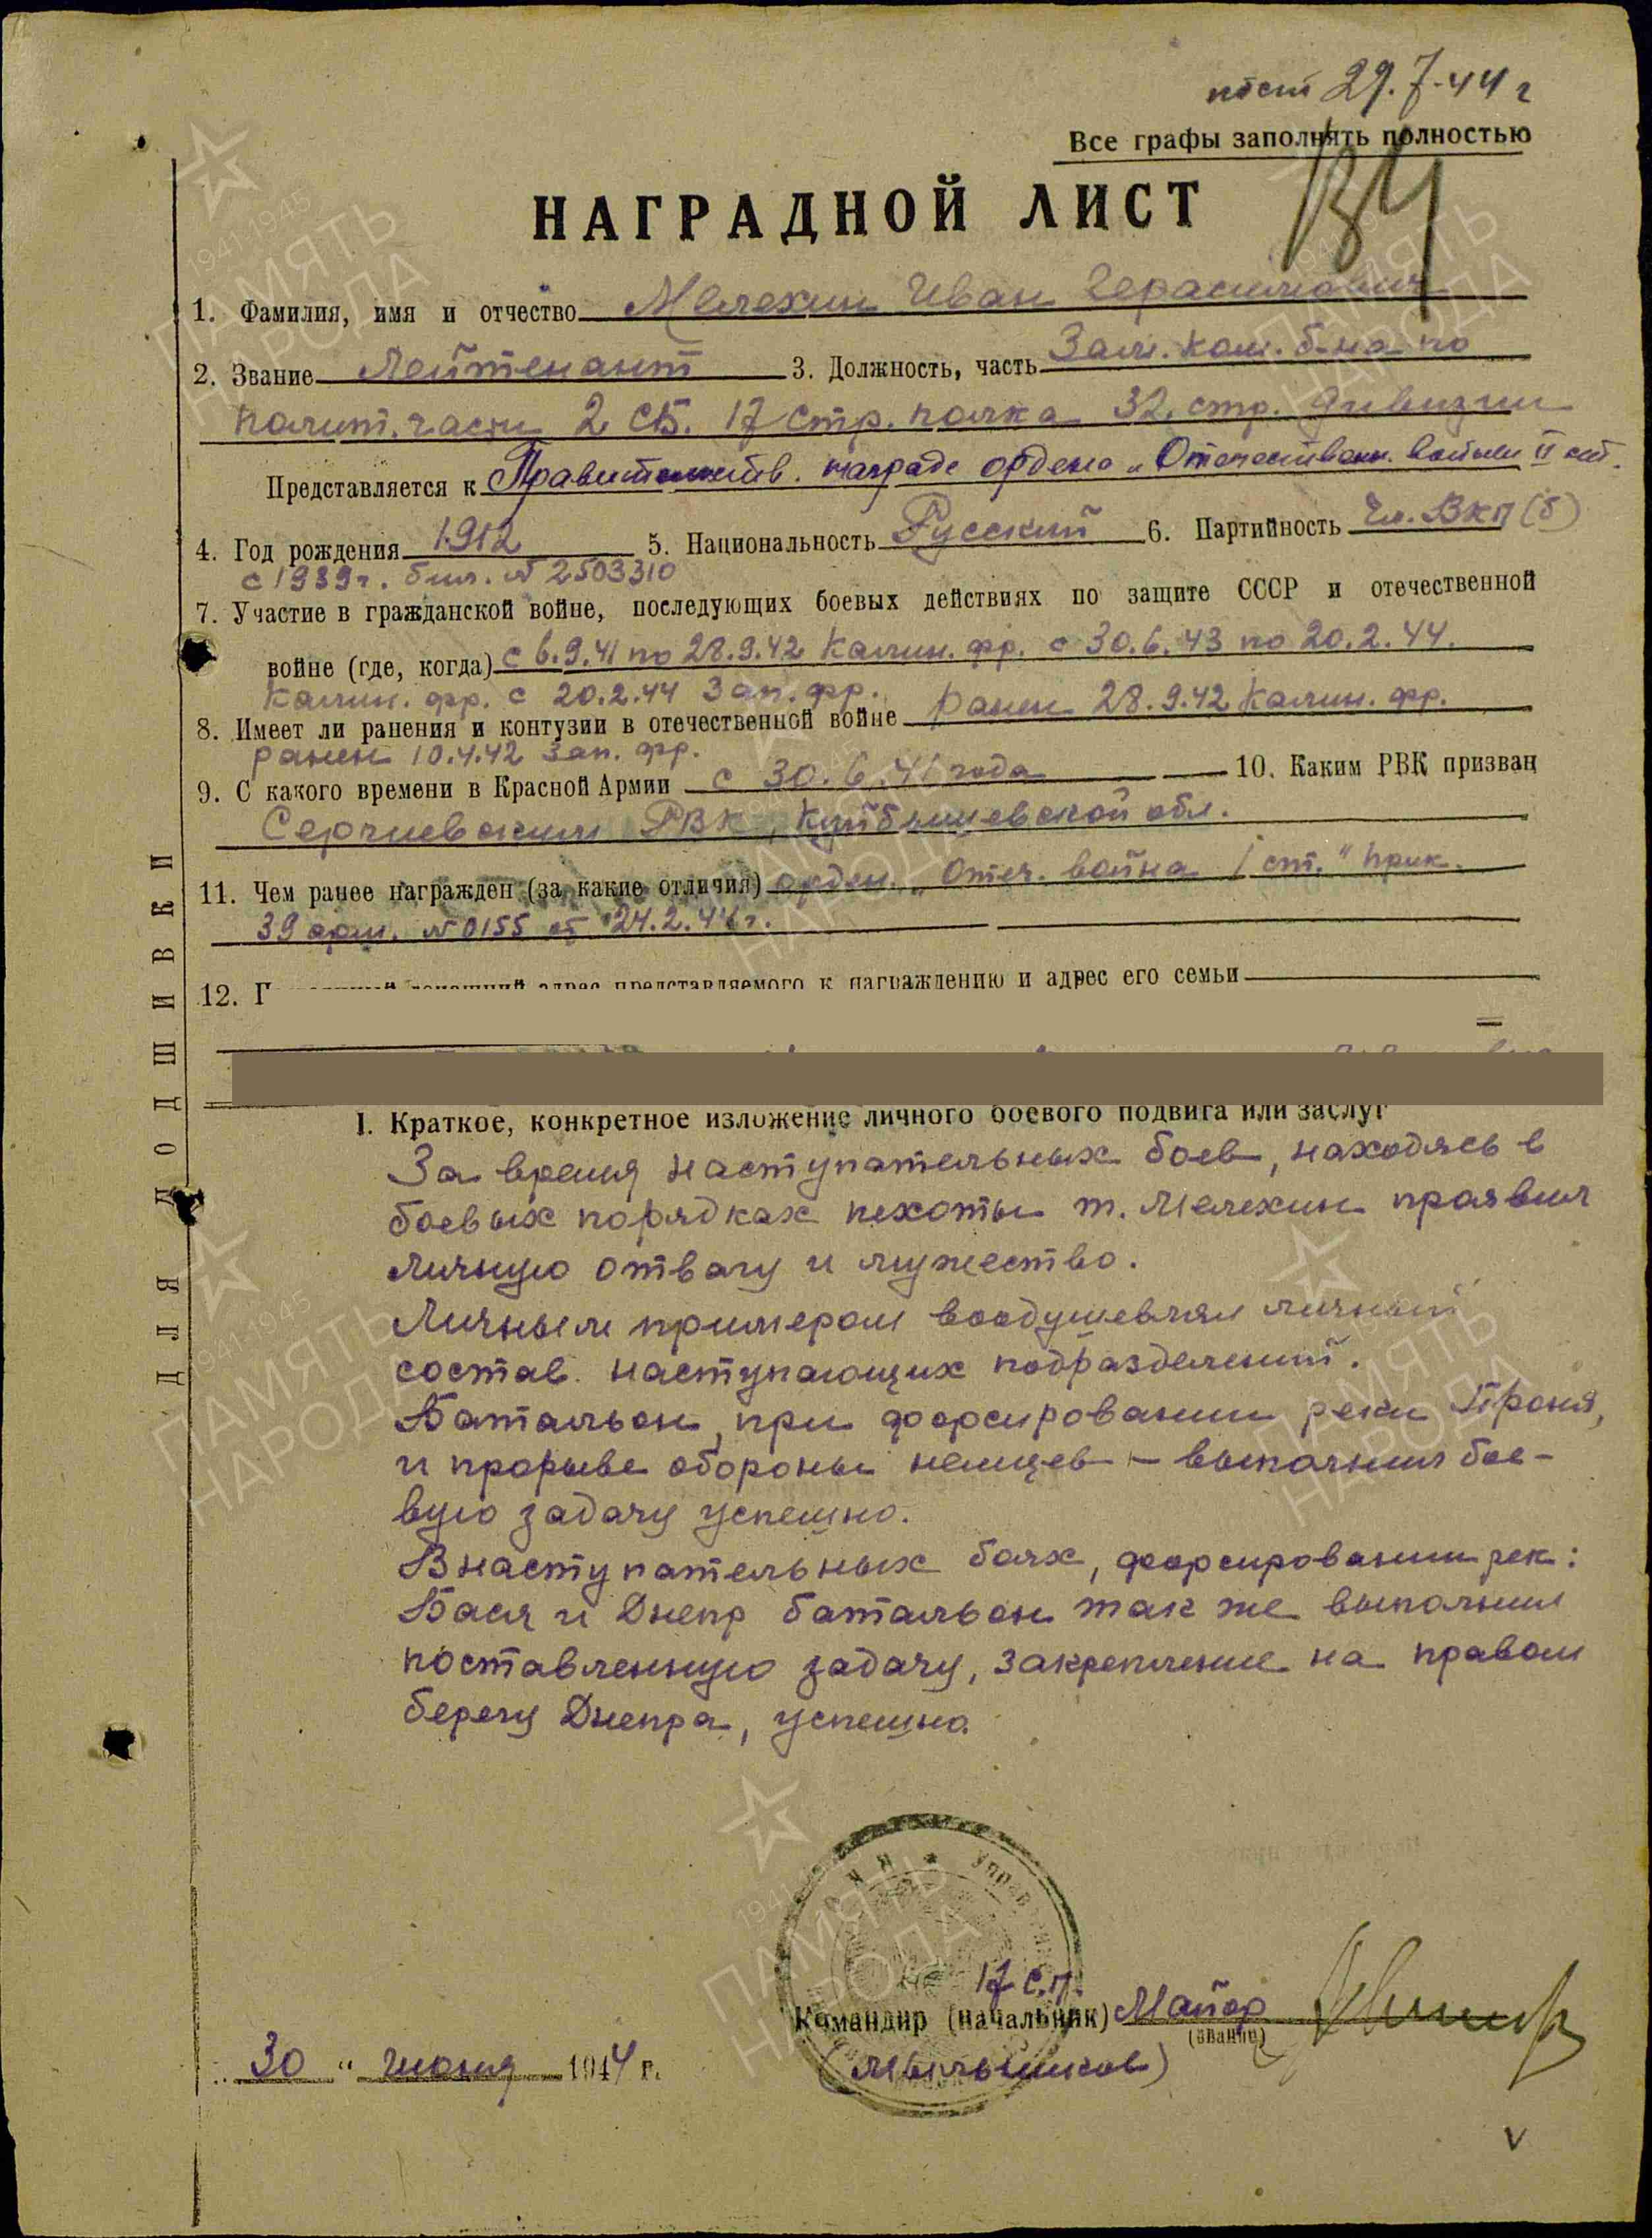 пост 29.7.44 г
Все графы заполнять полностью
НАГРАДНОЙ ЛИСТ
1. Фамилия, имя и отчество Мелехин Иван Герасимович
2. Звание Лейтенант 3. Должность, часть Зам. ком. б-на по
полит. части 2 СБ. 17 стр. полка 32 стр. дивизии
Представляется к Правительств. награде ордена „Отечествен. войны II ст.
4. Год рождения 1912 5. Национальность Русский 6. Партийность Чл. ВКП(б)
с 1939г. бил. № 2503310
7. Участие в гражданской войне, последующих боевых действиях по защите СССР и отечественной
войне (где, когда) с 6.9.41 по 28.9.42 Калин. фр. с 30.6.43 по 20.2.44.
Калин. фр. с 20.2.44 Зап. фр.
8. Имеет ли ранения и контузии в отечественной войне ранен 28.9.42 Калин. фр.
ранен 10.4.42 Зап. фр.
9. С какого времени в Красной Армии с 30.6.41 года 10. Каким РВК призван
Сергиевским РВК, Куйбышевской обл.
11. Чем ранее награжден (за какие отличия) орден. „Отеч. война I ст." прик.
39 арм. № 0155 от 24.2.44г.
12. домашний адрес представляемого к награждению и адрес его семьи
I. Краткое, конкретное изложение личного боевого подвига или заслуг
За время наступательных боев, находясь в
боевых порядках пехоты т. Мелехин проявил
личную отвагу и мужество.
Личным примером воодушевлял личный
состав. наступающих подразделений.
Батальон, при форсировании реки Проня,
и прорыве обороны немцев – выполнил бое-
вую задачу успешно.
В наступательных боях, форсировании рек:
Бася и Днепр батальон так же выполнил
поставленную задачу, закрепление на правом
берегу Днепра, успешно
17 с.п.
Командир (начальник) Майор
(звание)
(Мыльников)
„30" июня 1944 г.
ДЛЯ ПОДШИВКИ
1941 1945
ПАМЯТЬ
НАРОДА